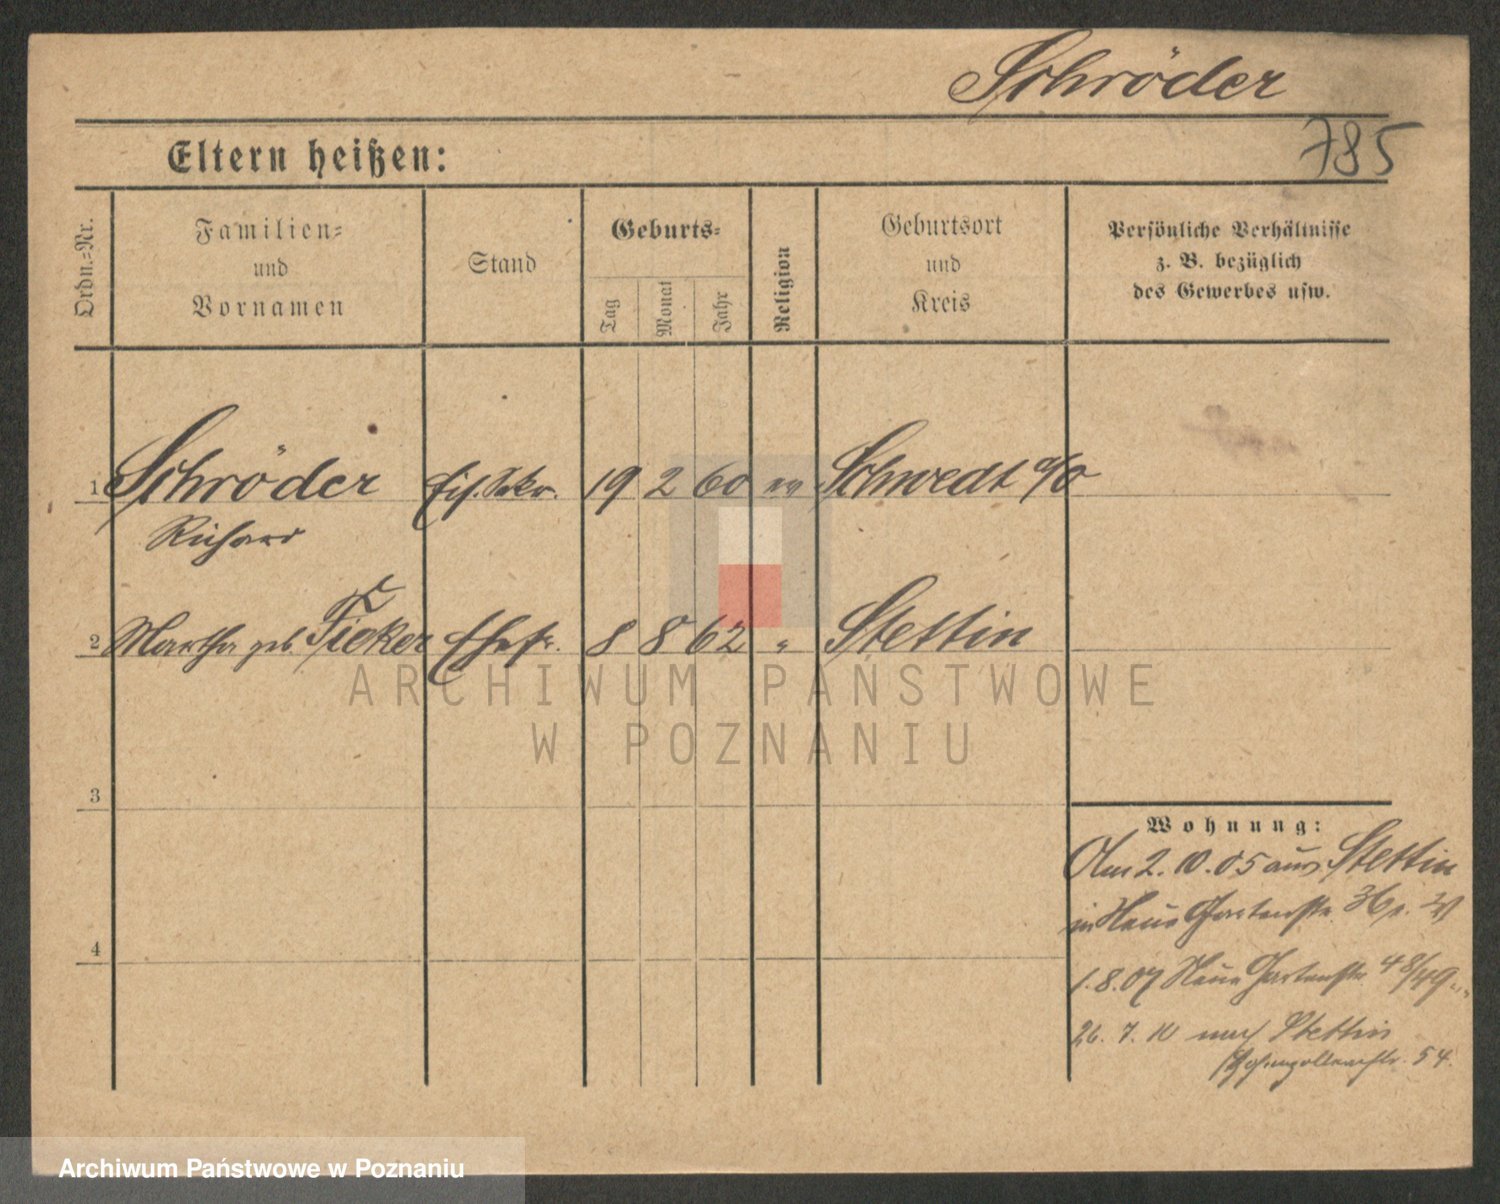 Schröder
785
Eltern heißen:
Ordn.-Nr.
Familien-
und
Vornamen
Stand
Geburts-
Tag
Monat
Jahr
Religion
Geburtsort
und
Kreis
Persönliche Verhältnisse
z. B. bezüglich
des Gewerbes usw.
1 Schröder Eis. Sekr. 19 2 60 ev Schwedt a/O
Richard
2 Martha geb. Ficker Ehefr. 8 8 62 " Stettin
3
4
Wohnung:
Am 2. 10. 05 aus Stettin
in Neue Gartenstr. 36
1. 8. 07 Neue Gartenstr. 48/49
26. 7. 10 nach Stettin
Hohenzollernstr. 54.
ARCHIWUM PAŃSTWOWE
W POZNANIU
Archiwum Państwowe w Poznaniu